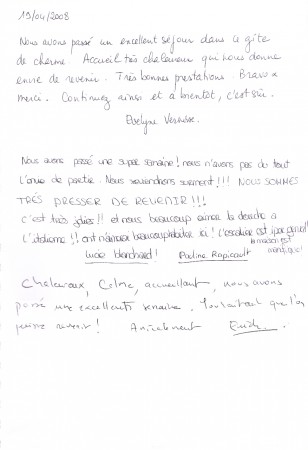 19/04/2008
Nous avons passé un excellent séjour dans ce gîte
de charme. Accueil très chaleureux qui nous donne
envie de revenir. Très bonnes prestations. Bravo &
merci. Continuez ainsi et à bientôt, c'est sûr.
Evelyne
Nous avons passé une super semaine! nous n'avons pas du tout
l'envie de partir. Nous reviendrons surement!!! NOUS SOMMES
TRÉS PRESSER DE REVENIR!!!
c'est très jolies!! et nous beaucoup aimer la douche a
l'italienne!! ont n'aimerai beaucoup habiter ici! l'escalier est
la maison est
magnifique!
lucie blanchard! Pauline Rapicault
Chaleureux, Calme, accueillant, nous avons
passé une excellente semaine. Souhaitant que l'on
puisse revenir! Amicalement